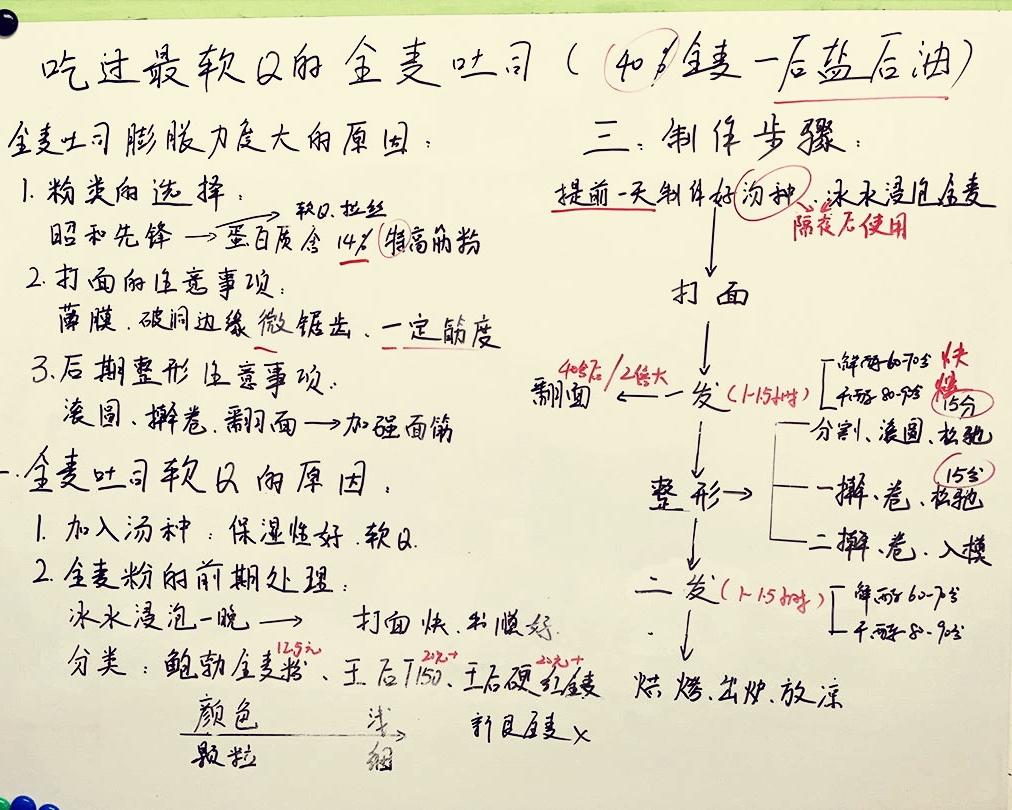 吃过最软Q的全麦吐司（40%全麦－后盐后油）
全麦吐司膨胀力度大的原因：
1. 粉类的选择：
软Q、拉丝
昭和先锋→蛋白质含14% 特高筋粉
2. 打面的注意事项：
薄膜、破洞边缘微锯齿、一定筋度
3. 后期整形注意事项：
滚圆、擀卷、翻面→加强面筋
全麦吐司软Q的原因：
1. 加入汤种：保湿性好、软Q.
2. 全麦粉的前期处理：
冰水浸泡一晚→ 打面快、
分类：鲍勃全麦粉、王后T150、王后硬红全麦
12.5元 20元+ 20元+
颜色 浅
颗粒 细
新良全麦×
三、制作步骤：
提前一天制作好汤种、冰水浸泡全麦
隔夜后使用
打面
翻面←一发（1-1.5小时）
40分后/2倍大
鲜酵60-70分 快
干酵80-90分 慢
15分
分割、滚圆、松弛
15分
整形→ 一擀、卷、松弛
二擀、卷、入模
二发（1-1.5小时）
鲜酵60-70分
干酵80-90分
烘烤、出炉、放凉